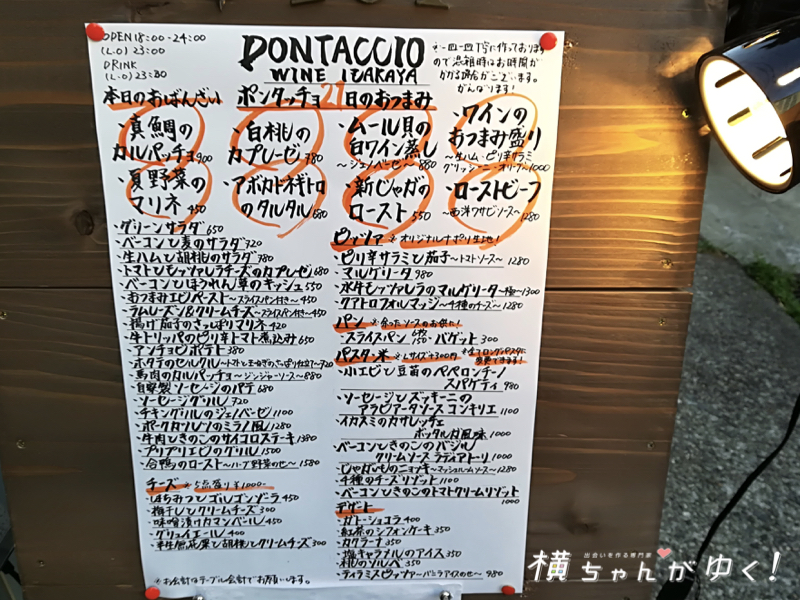 OPEN 18:00-24:00
(L.O) 23:00
DRINK
(L.O) 23:30
PONTACCIO
WINE IZAKAYA
※一皿一皿丁寧に作っております
ので混雑時はお時間が
かかる場合がございます。
がんばります!
本日のおばんざい
ポンタッチョ27日のおつまみ
・真鯛の
カルパッチョ 900
・白桃の
カプレーゼ 780
・ムール貝の
白ワイン蒸し
〜ジェノベーゼ〜 880
・ワインの
おつまみ盛り
〜生ハム・ピリ辛サラミ
グリッシーニ・オリーブ〜 1000
・夏野菜の
マリネ 450
・アボカドネギトロ
のタルタル 680
・新じゃがの
ロースト 550
・ローストビーフ
〜西洋ワサビソース〜 1280
・グリーンサラダ 650
・ベーコンと麦のサラダ 720
・生ハムと胡桃のサラダ 780
・トマトとモッツァレラチーズのカプレーゼ 680
・ベーコンとほうれん草のキッシュ 550
・おつまみエビペースト〜スライスパン付き〜 450
・ラムレーズン&クリームチーズ〜スライスパン付き〜 450
・揚げ茄子のさっぱりマリネ 420
・牛トリッパのピリ辛トマト煮込み 650
・アンチョビポテト 380
・ホタテのセルクル〜トマトと玉ねぎのさっぱり仕立て〜 720
・馬肉のカルパッチョ〜ジンジャーソース〜 880
・自家製ソーセージのパテ 680
・ソーセージグリル 720
・チキングリルのジェノベーゼ 1100
・ポークカツレツのミラノ風 1280
・牛肉ときのこのサイコロステーキ 1380
・プリプリエビのグリル 1500
・合鴨のロースト〜ハーブ野菜のせ〜 1580
チーズ ※5点盛り¥1000-
・はちみつとゴルゴンゾーラ 450
・梅干しとクリームチーズ 300
・味噌漬けカマンベール 450
・グリュイエール 400
・胡桃とクリームチーズ 300
※お会計はテーブル会計でお願いします。
ピッツァ ※オリジナルナポリ生地!
・ピリ辛サラミと茄子〜トマトソース〜 1280
・マルゲリータ 980
・水牛モッツァレラのマルゲリータ〜極〜 1300
・クアトロフォルマッジ〜4種のチーズ〜 1280
パン ※余ったソースのお供に!
・スライスパン 150・バゲット 300
パスタ・米 ※Lサイズ+300円 ※全てロングパスタに変更できます!
・小エビと豆苗のペペロンチーノ
スパゲティ 980
・ソーセージとズッキーニの
アラビアータソースコンキリエ 1100
・イカスミのカサレッチェ
ボッタルガ風味 1000
・ベーコンときのこのバジル
クリームソースラディアトーリ 1000
・じゃがいものニョッキ〜マッシュルームソース〜 1280
・4種のチーズリゾット 1100
・ベーコンときのこのトマトクリームリゾット
1000
デザート
・ガトーショコラ 400
・紅茶のシフォンケーキ 350
・カタラーナ 350
・塩キャラメルのアイス 350
・桃のソルベ 350
・ティラミスピッツァ〜バニラアイスのせ〜 980
出会いを作る専門家
横ちゃんがゆく!